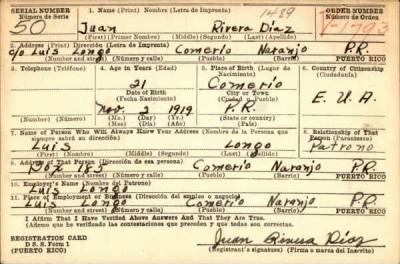 SERIAL NUMBER
Número de Serie
50
1. Name (Print) (Nombre) (Letra de Imprenta)
1489
Juan Rivera Díaz
(First) (Primer Nombre) (Middle) (Segundo) (Last) (Apellido)
ORDER NUMBER
Número de Orden
1793
2. Address (Print) (Dirección) (Letra de Imprenta)
c/o Luis Longo Comerío Naranjo P.R.
(Number and street) Número y calle (Town) (Pueblo) PUERTO RICO
3. Telephone (Teléfono)
4. Age in Years (Edad)
21
Date of Birth
(Fecha Nacimiento)
Nov. 2 1919
(Mo.) (Day) (Yr.)
(Mes) (Día) (Año)
5. Place of Birth (Lugar de Nacimiento)
Comerío
City or Town
(Ciudad o Pueblo)
P.R.
(State or country)
(País)
6. Country of Citizenship
(Ciudadanía)
E. U. A.
7. Name of Person Who Will Always Know Your Address (Nombre de la Persona que
siempre sabrá su dirección)
Luis Longo
(First) (Nombre) (Middle) (Last) (Apellido)
8. Relationship of That
Person (Parentesco)
Patrono
9. Address of That Person (Dirección de esa persona)
Box 183 Comerío Naranjo P.R.
(Number and street) Número y calle (Town) (Pueblo) PUERTO RICO
10. Employer's Name (Nombre del Patrono)
Luis Longo
11. Place of Employment or Business (Dirección del empleo o negocio)
Luis Longo Comerío Naranjo P.R.
(Number and street) Número y calle (Town) (Pueblo) PUERTO RICO
I Affirm That I Have Verified Above Answers And That They Are True.
(Afirmo que he verificado las contestaciones que preceden y que todas son correctas.
REGISTRATION CARD
D. S. S. Form 1
(PUERTO RICO)
Juan Rivera Díaz
(Registrant's signature) (Firma o marca del Inscrito)